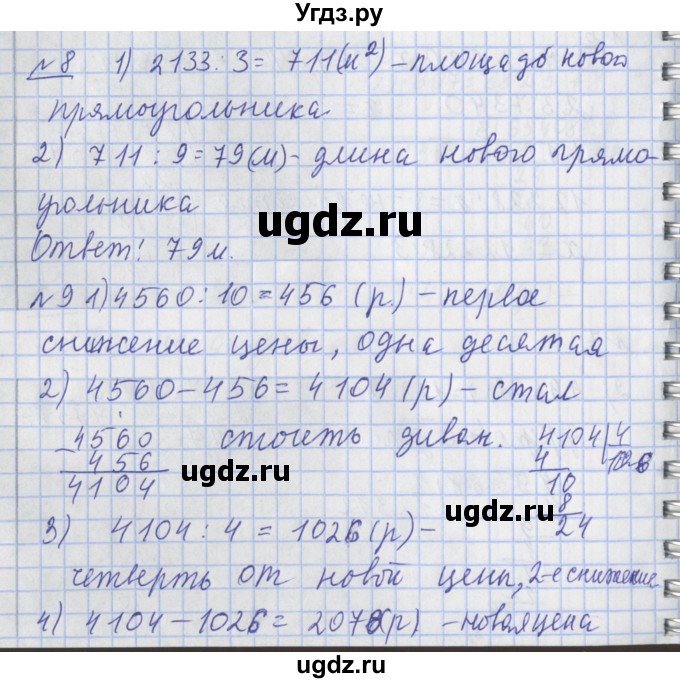 Угдз.ру
№8 1) 2133:3= 711(м²) – площадь нового
прямоугольника
2) 711 : 9 = 79(м) - длина нового прямо-
угольника
ugdz.ru
Ответ: 79 м.
ugdz.ru
№9 1) 4560:10 = 456 (р) – первое
снижение цены, одна десятая
2) 4560 – 456 = 4104 (р) – стал
стоить диван.
4560
456
4104
4104 4
4 1026
10
8
24
ugdz.ru
ugdz.ru
3) 4104 : 4 = 1026 (р) –
четверть от новой цены, 2-е снижение
4) 4104 – 1026 = 2078(р) – новая цена
ugdz.ru
ugdz.ru